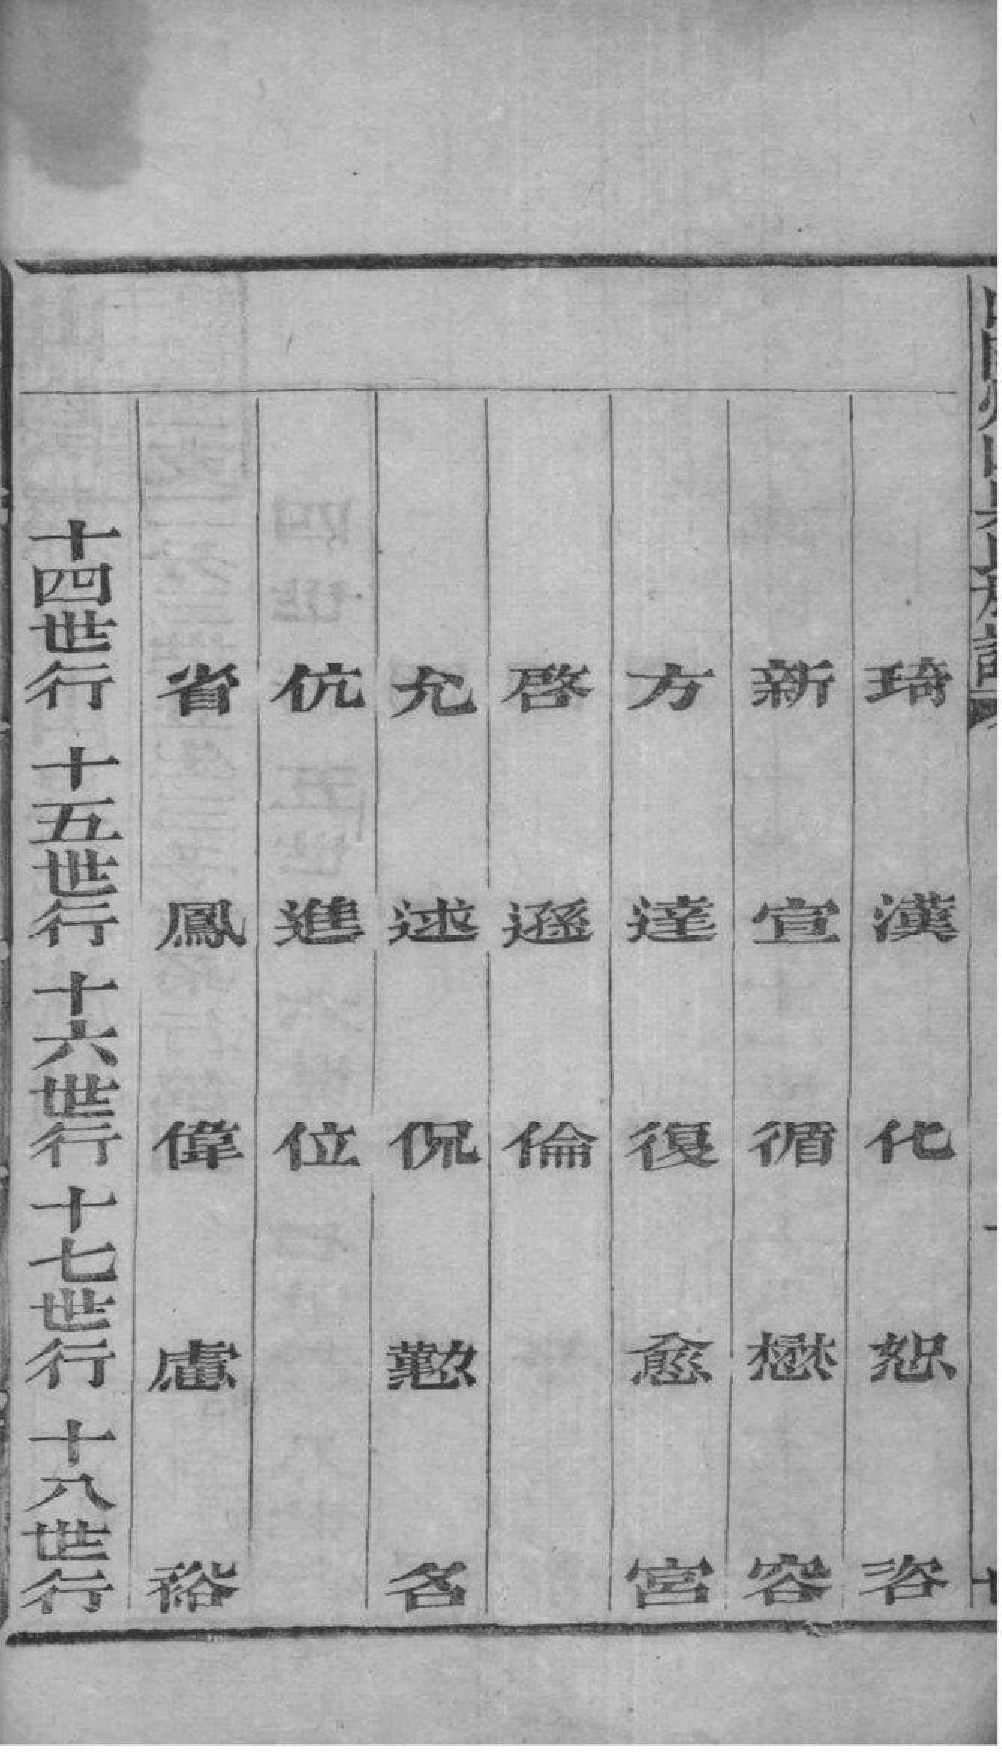 琦 漢 化 恕 咨
新 宣 循 懋 容
方 達 復 愈 宮
啓 遜 倫
允 述 侃 懃 名
伉 進 位
省 鳳 偉 慮 裕
十四世行 十五世行 十六世行 十七世行 十八世行